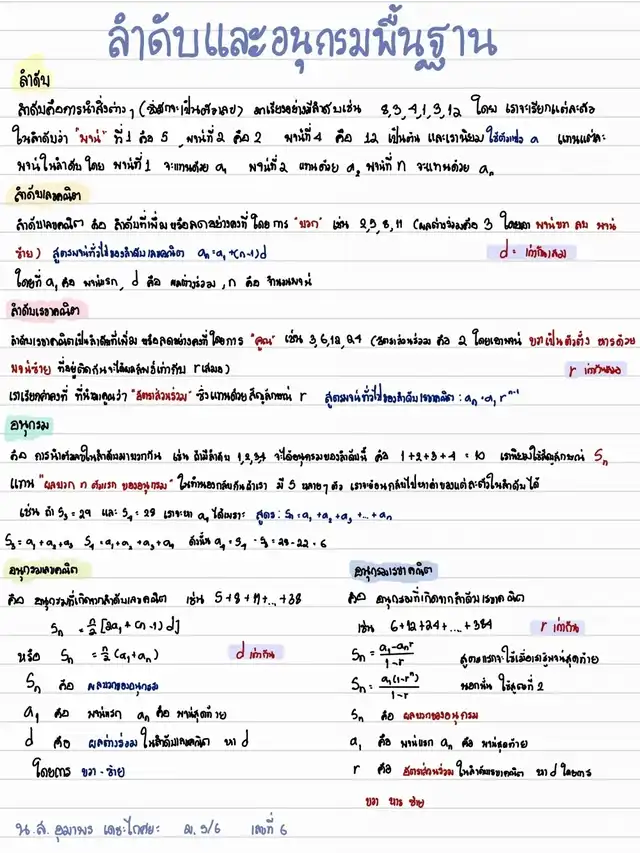 ลำดับและอนุกรมพื้นฐาน
ลำดับ
ลำดับคือการนำสิ่งต่างๆ (ซึ่งมักจะเป็นตัวเลข) มาเรียงอย่างมีลำดับเช่น 8,3,4,1,3,12 โดย เราจะเรียกแต่ละตัว
ในลำดับว่า "พจน์" ที่ 1 คือ 5 , พจน์ที่ 2 คือ 2 พจน์ที่ 4 คือ 12 เป็นต้น และเรานิยม ใช้ตัวแปร a แทนแต่ละ
พจน์ในลำดับ โดย พจน์ที่ 1 จะแทนด้วย a₁ พจน์ที่ 2 แทนด้วย a₂ พจน์ที่ n จะแทนด้วย aₙ
ลำดับเลขคณิต
ลำดับเลขคณิต คือ ลำดับที่เพิ่ม หรือลดอย่างคงที่ โดย การ "บวก" เช่น 2,5,8,11 (ผลต่างร่วมคือ 3 โดยเอา พจน์ขวา ลบ พจน์
ซ้าย) สูตรพจน์ทั่วไปของลำดับเลขคณิต aₙ = a₁ + (n-1)d d = เท่ากันเสมอ
โดยที่ a₁ คือ พจน์แรก , d คือ ผลต่างร่วม , n คือ จำนวนพจน์
ลำดับเรขาคณิต
ลำดับเรขาคณิตเป็นลำดับที่เพิ่ม หรือลดอย่างคงที่โดยการ "คูณ" เช่น 3,6,12,24 (อัตราส่วนร่วม คือ 2 โดยเอาพจน์ ขวาเป็นตัวตั้ง หารด้วย
พจน์ซ้าย ที่อยู่ติดกันจะได้ผลลัพธ์เท่ากับ r เสมอ) r เท่ากันเสมอ
เราเรียกค่าคงที่ ที่นำมาคูณว่า "อัตราส่วนร่วม" ซึ่งแทนด้วย สัญลักษณ์ r สูตรพจน์ทั่วไปของลำดับเรขาคณิต : aₙ = a₁ rⁿ⁻¹
อนุกรม
คือ การนำตัวเลขในลำดับมาบวกกัน เช่น ถ้ามีลำดับ 1,2,3,4 จะได้อนุกรมของลำดับนี้ คือ 1+2+3+4 = 10 เรานิยมใช้สัญลักษณ์ Sₙ
แทน "ผลบวก n ตัวแรก ของอนุกรม" ในทำนองกลับกันถ้าเรา มี S หลายๆ ตัว เราจะย้อนกลับไปหาค่าของแต่ละตัวในลำดับได้
เช่น ถ้า S₃ = 22 และ S₄ = 28 เราจะหา a₄ ได้เพราะ สูตร : Sₙ = a₁ + a₂ + a₃ + ... + aₙ
S₃ = a₁ + a₂ + a₃ S₄ = a₁ + a₂ + a₃ + a₄ ดังนั้น a₄ = S₄ - S₃ = 28 - 22 = 6
อนุกรมเลขคณิต
คือ อนุกรมที่เกิดจากลำดับเลขคณิต เช่น 5+8+11+...+38
Sₙ = n/2 [2a₁ + (n-1)d]
หรือ Sₙ = n/2 (a₁ + aₙ) d เท่ากัน
Sₙ คือ ผลบวกของอนุกรม
a₁ คือ พจน์แรก aₙ คือ พจน์สุดท้าย
d คือ ผลต่างร่วม ในลำดับเลขคณิต หา d
โดยการ ขวา - ซ้าย
อนุกรมเรขาคณิต
คือ อนุกรมที่เกิดจากลำดับเรขาคณิต
เช่น 6+12+24+...+384 r เท่ากัน
Sₙ = a₁-aₙr / 1-r สูตรแรกจะใช้เมื่อเรารู้พจน์สุดท้าย
Sₙ = a₁(1-rⁿ) / 1-r นอกนั้น ใช้สูตรที่ 2
Sₙ คือ ผลบวกของอนุกรม
a₁ คือ พจน์แรก aₙ คือ พจน์สุดท้าย
r คือ อัตราส่วนร่วม ในลำดับเรขาคณิต หา d โดยการ
ขวา หาร ซ้าย
น.ส. อุมาพร เดชะไกศยะ ม.5/6 เลขที่ 6